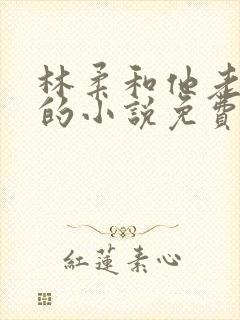 林柔和他走
的小說免費
紅蓮素心